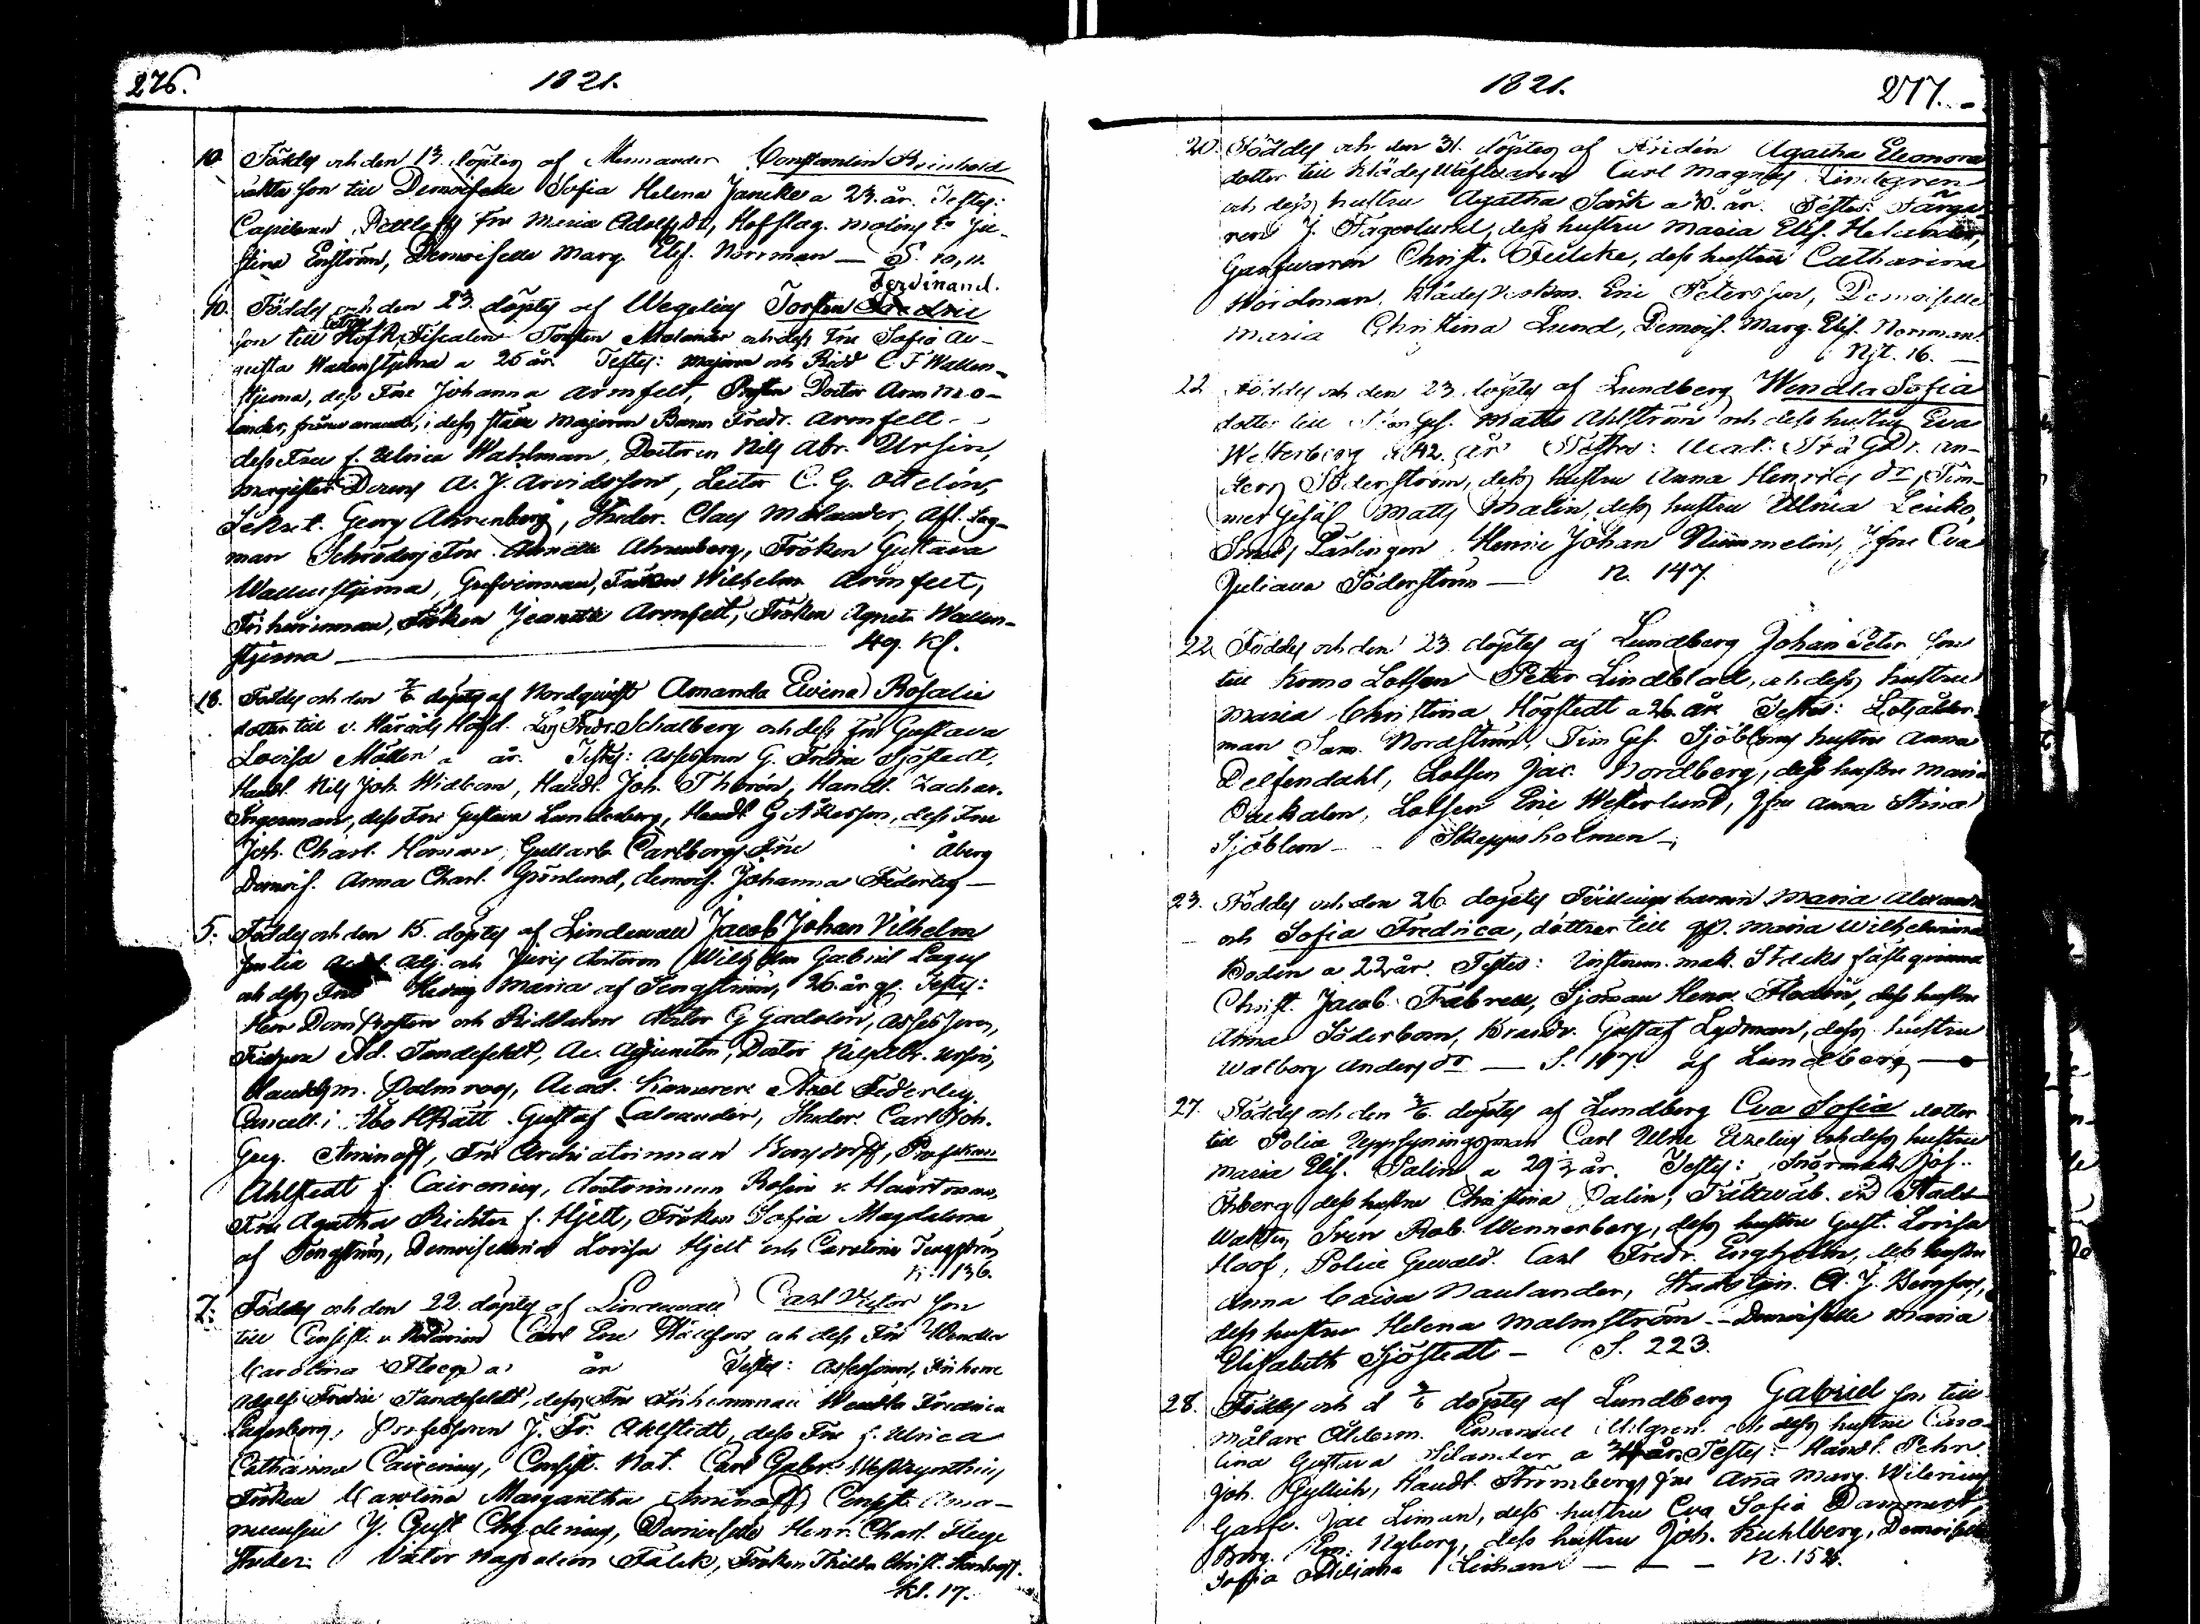 276. 1821.
10. Föddes och den 13. döptes af Memander Constantin Reinhold
oäkta son till Demoiselle Sofia Helena Jancke a 23. år. Testes:
Capitenen Fru Maria Adolfs Dr, Hofslag. Molins Ju-
stina Enström, Demoiselle Marg. Elis. Norrman — S. 10, 11.
Ferdinand.
10. Föddes och den 23. döptes af Wegelius Torsten Fredric
son till Hofr. Fiscalen Torsten Molander och dess Fru Sofia Au-
gusta Wallenstjerna a 26 år. Testes: Majoren och Ridd C. F Wallen-
stjerna, dess Fru Johanna Armfelt, Prosten Doctor Aron Mo-
lander, frånvarande, i dess ställe Majoren Baron Fredr. Armfelt
dess Fru f. Ulrica Wahlman, Doctoren Nils Abr. Ursin,
Magister Docens A. J. Arvidsson, Lector C. G. Ottelin,
Sekret. Georg Ahrenberg, Studer. Claes Molander, Afl. Lag-
man Schröders Fru Annette Ahrenberg, Fröken Gustava
Wallenstjerna, Grefvinnan, Fröken Wilhelm. Armfelt,
Friherrinnan, Fröken Jeanette Armfelt, Fröken Agneta Wallen-
stjerna — 49. Kl.
18. Föddes och den 7/6 döptes af Nordqvist Amanda Elvina Rosalie
dotter till v. Härads Höfd. Fredr. Schalberg och dess fru Gustava
Lovisa Möller a år. Testes: Assessoren G. Fredric Sjöstedt,
Handl. Nils Joh. Widbom, Handl. Joh. Thorén, Handl. Zachar.
Ingerman, dess Fru Gustava Lundenberg, Handl G Åkerson, dess Fru
Joh. Charl. Homan, Gullarb. Carlborgs Fru Åberg
Demois. Anna Charl. Grönlund, demois. Johanna Federley —
5. Föddes och den 15. döptes af Lindewall Jacob Johan Vilhelm
son till Acad. Adj. och Juris doctoren Wilhelm Gabriel Lagus
och dess Fru Hedvig Maria af Tengström, 26. år gl. Testes:
Herr Dom Prosten och Riddaren doctor G Gadolin, Assessoren,
Friherre Ad. Tandefeldt, Ac. Adjuncten, Doctor Nils Abr. Ursin,
Handelsm. Palmroos, Acad. Kamerer. Axel Federley.
Cancell. i Åbo H Rätt Gustaf Calonander, Studer. Carl Joh.
Greg. Aminoff, Fru Archiaterinnan Bonsdorff, Professorskan
Ahlstedt f. Cairenius, doctorinnan Rosine v. Haartman,
Fru Agatha Richter f. Hjelt, Fröken Sofia Magdalena
af Tengström, Demoisellerna Lovisa Hjelt och Carolina Tengström
K. 136.
7. Föddes och den 22. döptes af Lindewall Carl Victor son
till Consist. v. Notarien Carl Eric Wäcelfors och dess Fru Wendla
Carolina Fleege a år Testes: Assessoren, Friherre
Adolf Fredric Tandefeldt, dess Fru Friherrinnan Wendla Fredrica
Lagerborg, Professoren J. Fr. Ahlstedt, dess Fru f. Ulrica
Catharina Cairenius, Consist. Not. Carl Gabr. Westzynthius
Fröken Carolina Margaretha Aminoff, Consist. Ama-
nuensen J. Gust Chydenius, Demoiselle Henr. Charl. Fleege
Studer. Victor Napoleon Falck, Fröken Thilda Christ.
Kl. 17.
1821. 277.
20. Föddes och den 31. döptes af Fridén Agatha Eleonora
dotter till Klädes Wäfvaren Carl Magnus Lindegren
och dess hustru Agatha Sark a 40. år. Testes: Färga-
ren J. Fagerlund, dess hustru Maria Elis. Helander,
Garfvaren Christ. Feilcke, dess hustru Catharina
Nordman, Klädes Eric Petersson, Demoiselle
Maria Christina Lund, Demois. Marg. Elis. Norrman.
Njt. 16. —
22. Föddes och den 23. döptes af Lundberg Wendla Sofia
dotter till Matts Ahlström och dess hustru Eva
Westerberg a 42. år Testes: Acad. an-
ders Söderström, dess hustru Anna Henrics Dr, Tim-
mer Gesäl Matts Malin, dess hustru Ulrica Leino,
Smeds Lärlingen Henric Johan Nummelin, Jfru Eva
Juliana Söderström — N. 147.
22. Föddes och den 23. döptes af Lundberg Johan Peter son
till Krono Lotsen Peter Lindblad, och dess hustru
Maria Christina Högstedt a 26. år Testes: Lotsålder-
man Sam. Nordström, Tim Ges. Sjöbloms hustru Anna
Delfendahl, Lotsen Jac. Nordberg, dess hustru Maria
Lotsen Eric Westerlund, Jfru Anna Stina
Sjöblom — Skeppsholmen —
23. Föddes och den 26. döptes Tvillingebarnen Maria Alexandra
och Sofia Fredrica, döttrar till qp. Maria Wilhelmina
Bodin a 22 år. Testes: Instrum. mak. Stecks fästeqvinna
Christ. Jacob. Fabrell, Sjöman Henr. Flodin, dess hustru
Anna Söderbom, Brandv. Gustaf Lydman, dess hustru
Walborg Anders Dr — S. 107. af Lundberg —
27. Föddes och den 3/6. döptes af Lundberg Eva Sofia dotter
till Police Uppsyningsman Carl Ulric Ezelius och dess hustru
Maria Elis. Palin a 29 1/2 år. Testes: Snörmak. Joh.
Osberg dess hustru Christina Palin, Fältwäb. vid Stads-
wakten Sven Rob. Wennerberg, dess hustru Gust. Lovisa
Hoof, Police Gewald. Carl Fredr. Engholm, dess hustru
Anna Caisa Naulander, Stadstjen. A. J. Bergfors,
dess hustru Helena Malmström — Demoiselle Maria
Elisabeth Sjöstedt — S. 223.
28. Föddes och d 3/6 döptes af Lundberg Gabriel son till
Målare Ålderm. Emanuel Milgren och dess hustru Caro-
lina Gustava Silander a år. Testes: Handl. Pehr
Joh. Gyllich, Handl. Strömbergs fru Anna Marg. Wilenius
Garfv. Jac Liman, dess hustru Eva Sofia Dammert,
Borg. Em. Nyborg, dess hustru Joh. Kuhlberg, Demoiselle
Sofia Liman — — — N. 152.